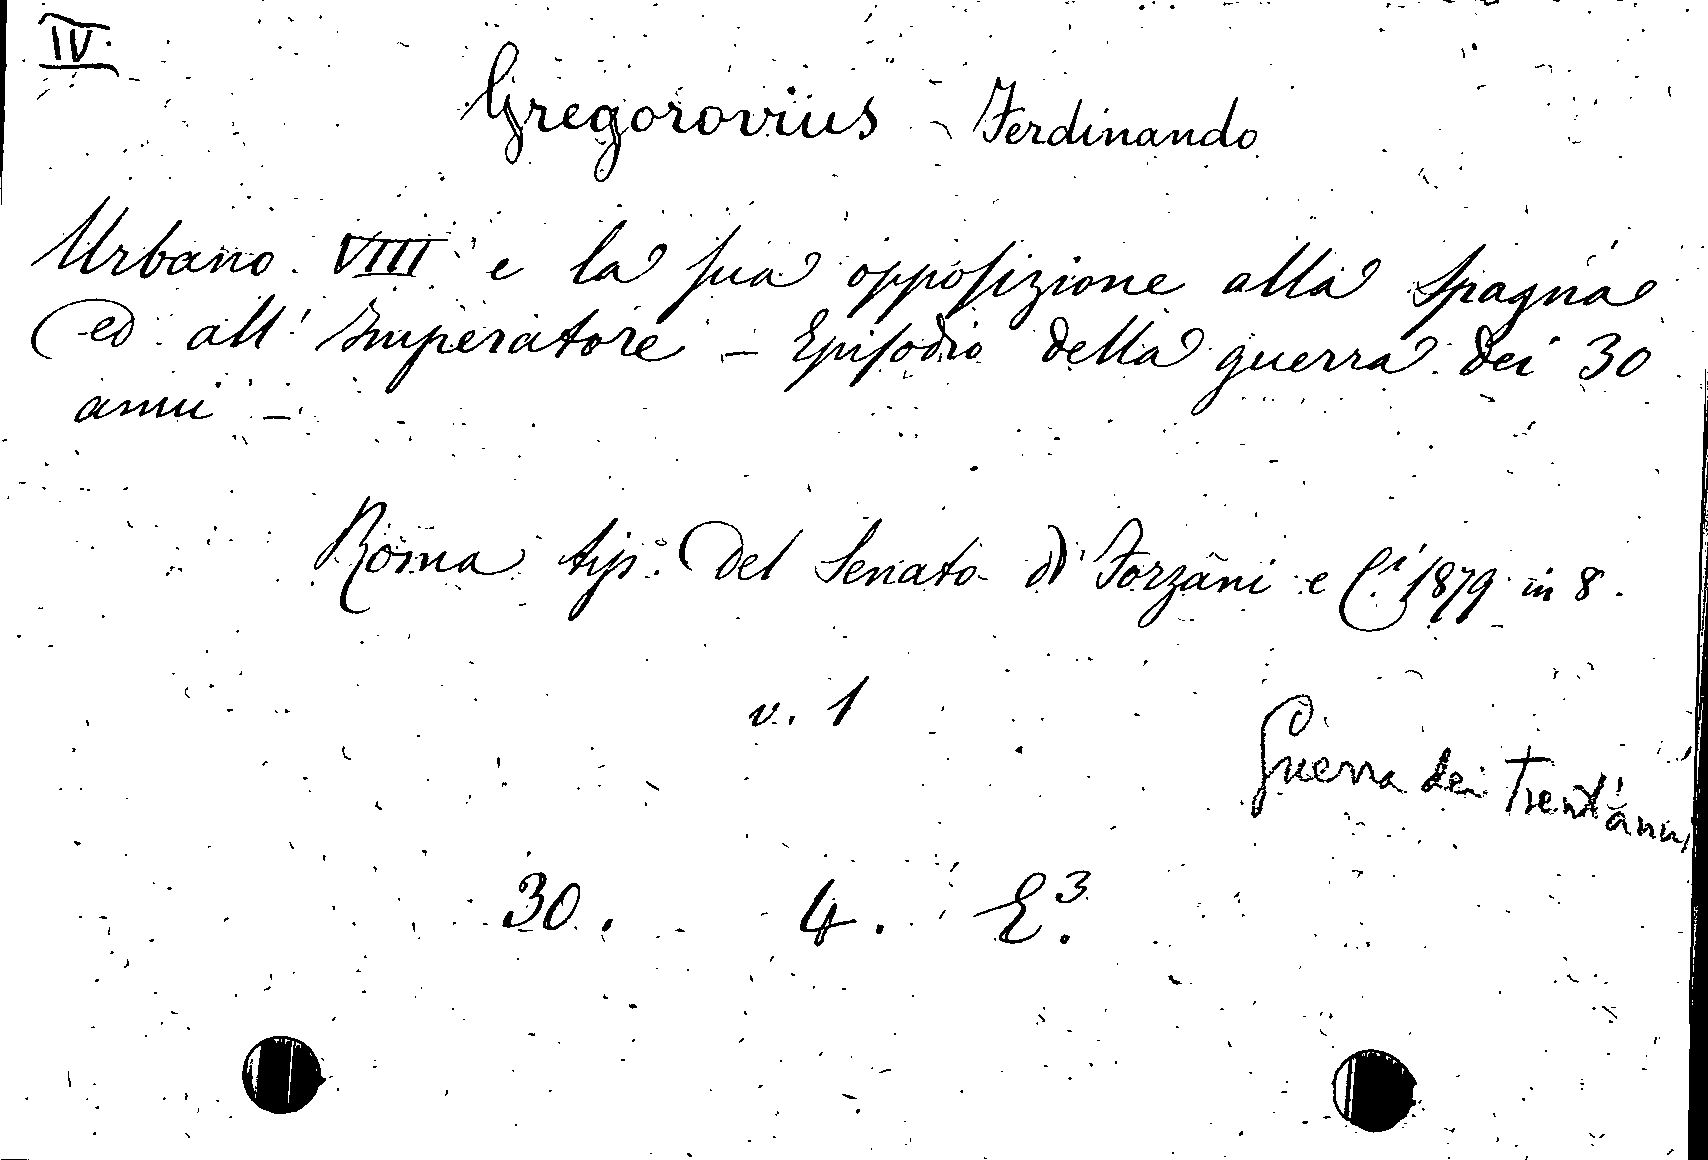 IV.
Gregorovius - Ferdinando
Urbano VIII e la sua opposizione alla Spagna
ed all' Imperatore - Episodio della guerra dei 30
anni -
Roma tip. del Senato di Forzani e C.i 1879 in 8.
v. 1
Guerra dei Trent'anni
30. 4. E.3